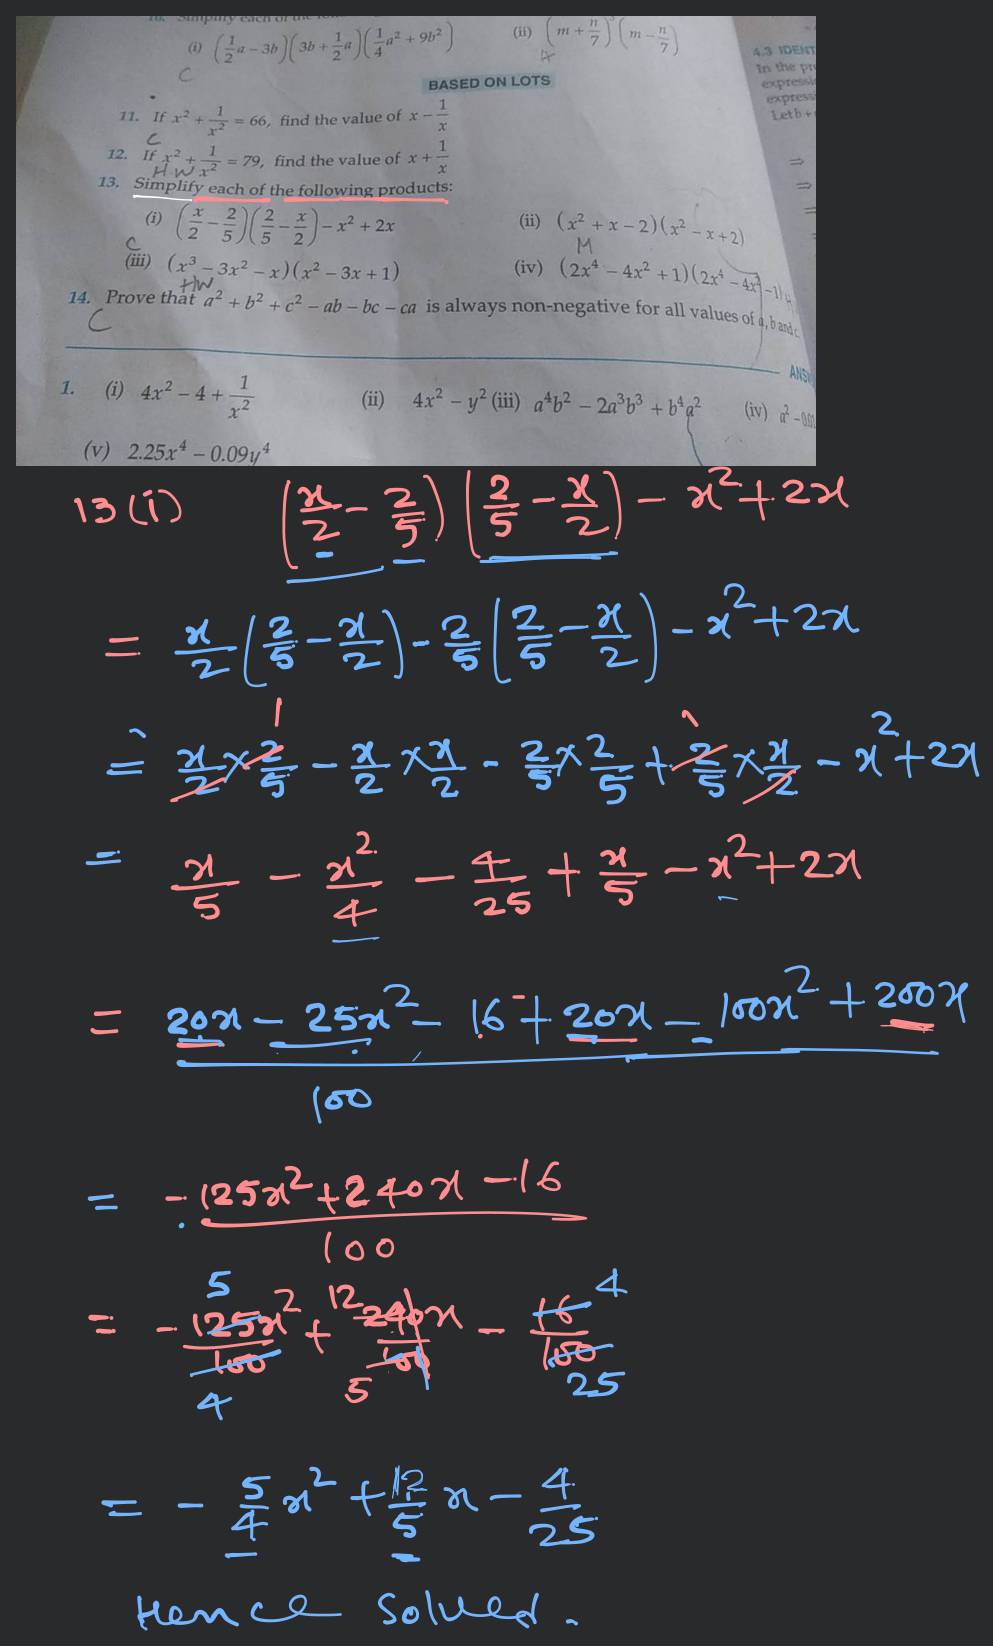 10. Simplify each of the
(i) (1/2 a − 3b)(3b + 1/2 a)(1/4 a² + 9b²) (ii) (m + n/7)³(m − n/7)
C A
4.3 IDENT
In the pr
express
express
Let b +
BASED ON LOTS
11. If x² + 1/x² = 66, find the value of x − 1/x
C
12. If x² + 1/x² = 79, find the value of x + 1/x
HW
13. Simplify each of the following products:
(i) (x/2 − 2/5)(2/5 − x/2) − x² + 2x (ii) (x² + x − 2)(x² − x + 2)
C M
(iii) (x³ − 3x² − x)(x² − 3x + 1) (iv) (2x⁴ − 4x² + 1)(2x⁴ − 4x² − 1)
HW H
14. Prove that a² + b² + c² − ab − bc − ca is always non-negative for all values of a, b and c
C
ANSW
1. (i) 4x² − 4 + 1/x² (ii) 4x² − y² (iii) a⁴b² − 2a³b³ + b⁴a² (iv) a² − 0.01
(v) 2.25x⁴ − 0.09y⁴
13 (i) (x/2 − 2/5)(2/5 − x/2) − x² + 2x
= x/2 (2/5 − x/2) − 2/5 (2/5 − x/2) − x² + 2x
= x/2 × 2/5 − x/2 × x/2 − 2/5 × 2/5 + 2/5 × x/2 − x² + 2x
= x/5 − x²/4 − 4/25 + x/5 − x² + 2x
= 20x − 25x² − 16 + 20x − 100x² + 200x
100
= −125x² + 240x − 16
100
5 12 4
= −125x²/100 + 240x/100 − 16/100
4 5 25
= − 5/4 x² + 12/5 x − 4/25
Hence solved.